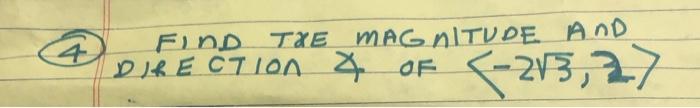 ④ FIND THE MAGNITUDE AND
DIRECTION ∡ OF <-2√3, 2>